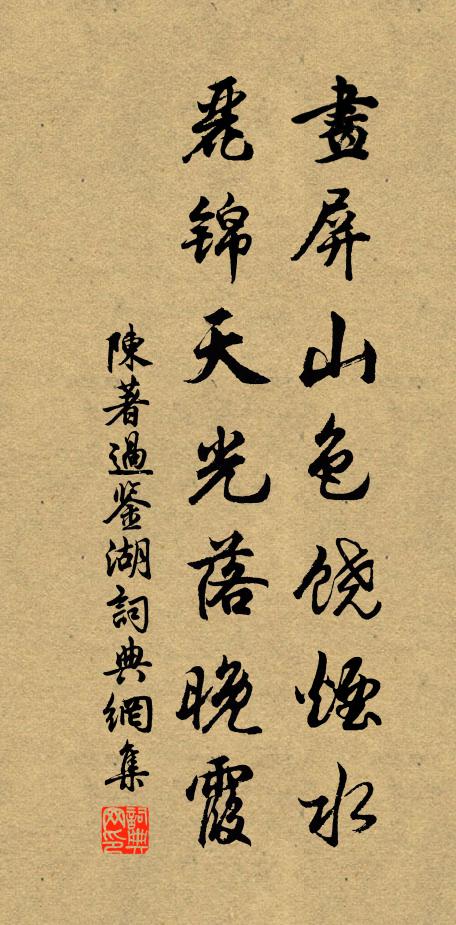 畫屏山色饒煙水
麗錦天光落晚霞
陳著過鉴湖詞典網集
詞典网印